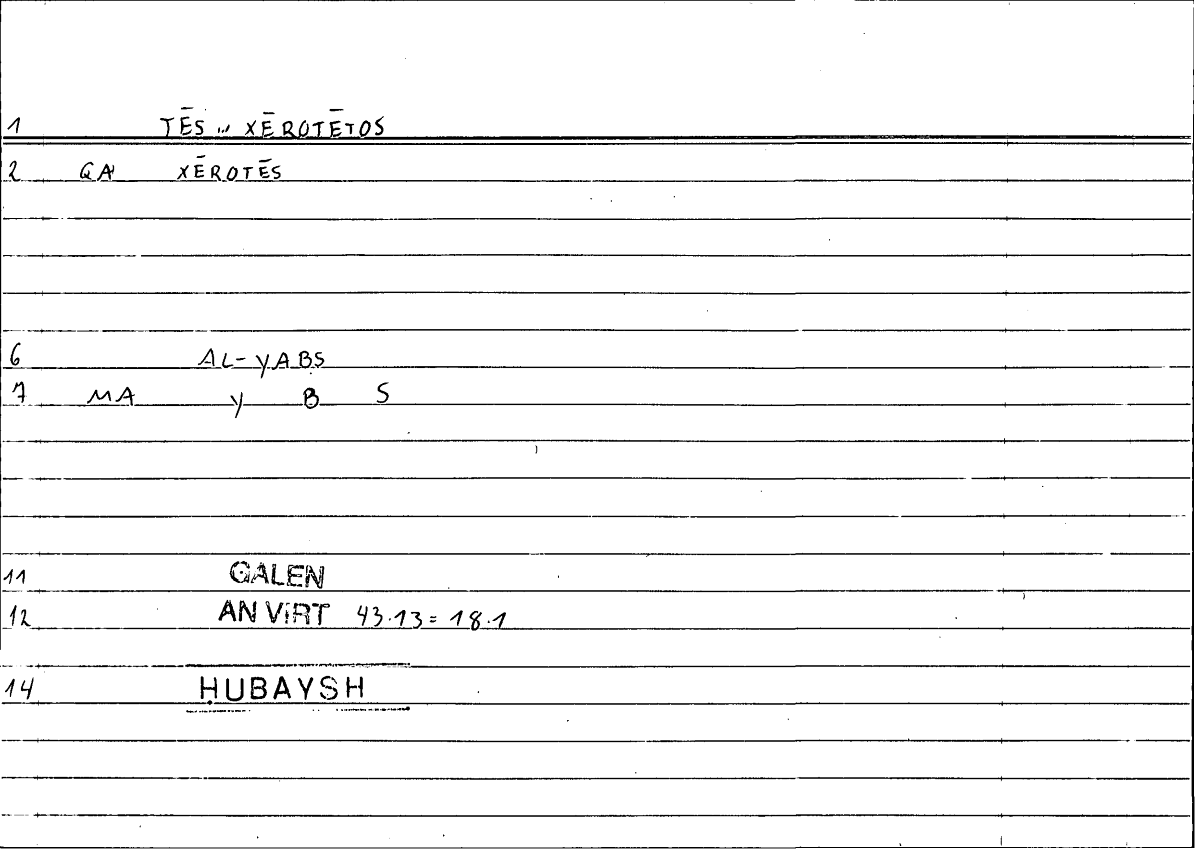 1 TĒS ... XĒROTĒTOS
2 GA XĒROTĒS
6 AL-YABS
7 MA Y B S
11 GALEN
12 AN VIRT 43.13 = 18.1
14 ḤUBAYSH